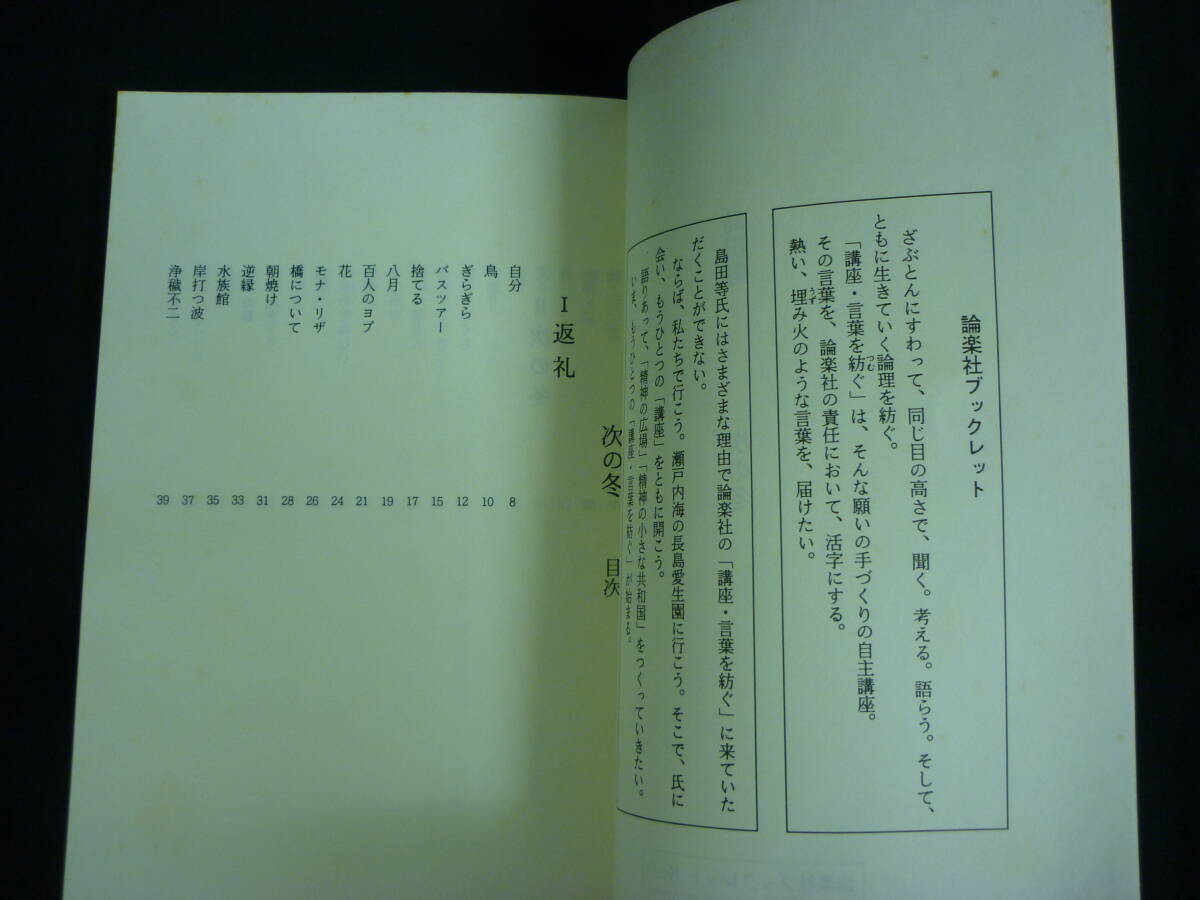 論楽社ブックレット
ざぶとんにすわって、同じ目の高さで、聞く。考える。語らう。そして、
ともに生きていく論理を紡ぐ。
「講座・言葉を紡ぐ」は、そんな願いの手づくりの自主講座。
その言葉を、論楽社の責任において、活字にする。
熱い、埋み火のような言葉を、届けたい。
島田等氏にはさまざまな理由で論楽社の「講座・言葉を紡ぐ」に来ていた
だくことができない。
ならば、私たちで行こう。瀬戸内海の長島愛生園に行こう。そこで、氏に
会い、もうひとつの「講座」をともに開こう。
語りあって、「精神の広場」「精神の小さな共和国」をつくっていきたい。
いま、もうひとつの「講座・言葉を紡ぐ」が始まる。
次の冬 目次
I 返礼
自分 8
鳥 10
ぎらぎら 12
バスツアー 15
捨てる 17
八月 19
百人のヨブ 21
花 24
モナ・リザ 26
橋について 28
朝焼け 31
逆縁 33
水族館 35
岸打つ波 37
浄穢不二 39